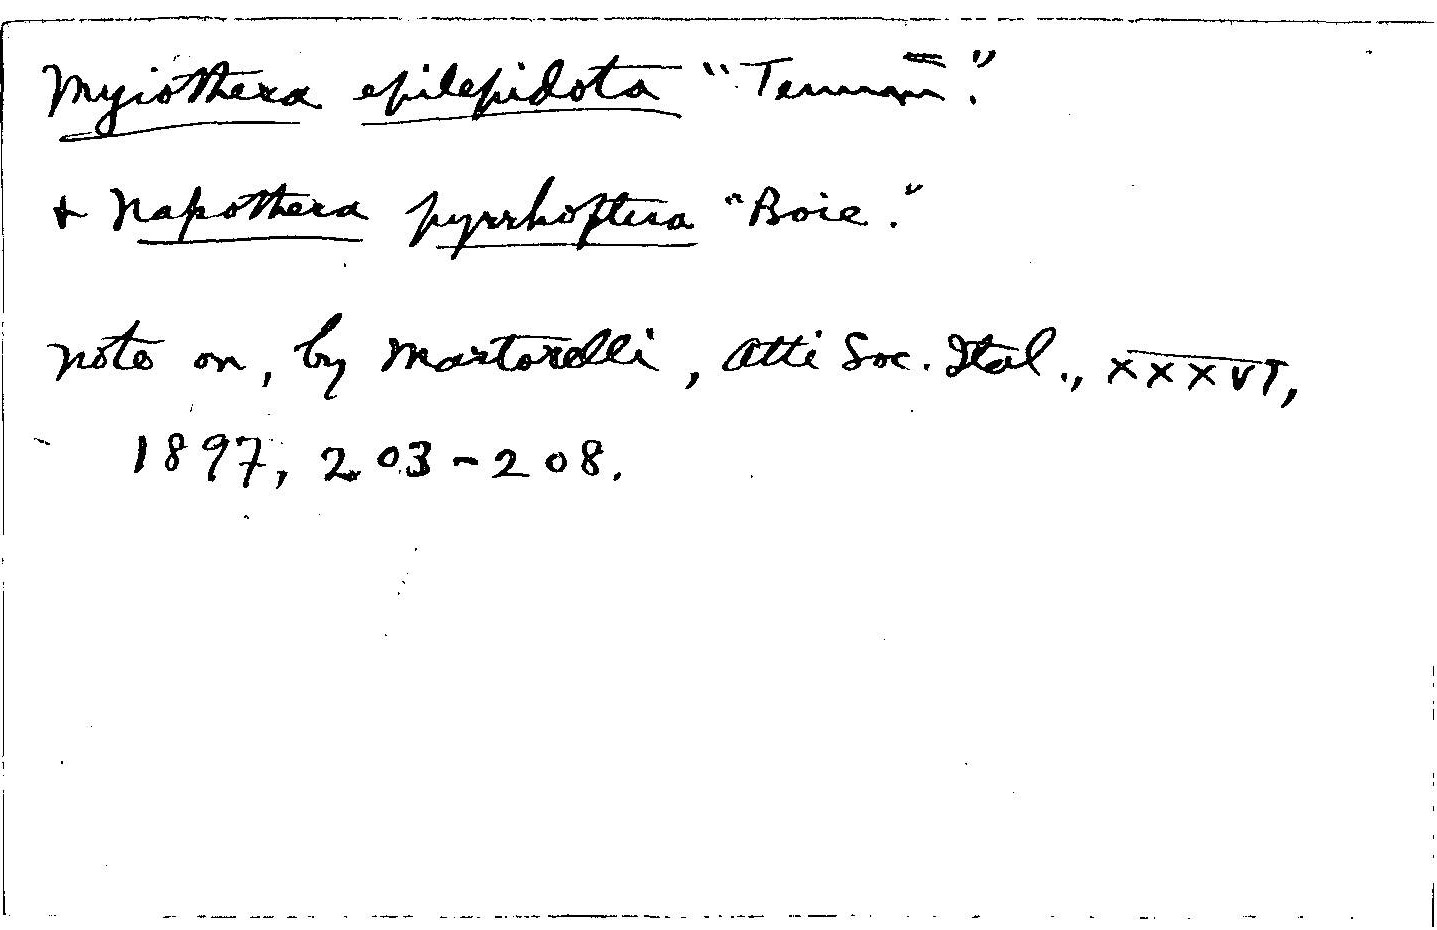 Myiothera epilepidota "Temm."
+ Napothera pyrrhoptera "Boie."
note on, by Martorelli, Atti Soc. Ital., XXXVI,
1897, 203-208.